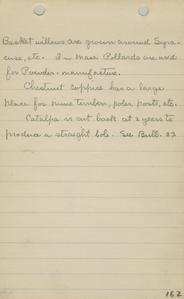 Basket willows are grown around Syra-
cuse, etc. In Mass. Pollards are used
for Powder-manufacture.
Chestnut coppice has a large
place for mine timbers, poles, posts, etc.
Catalpa is cut back at 2 years to
produce a straight bole. See Bull. 33
162